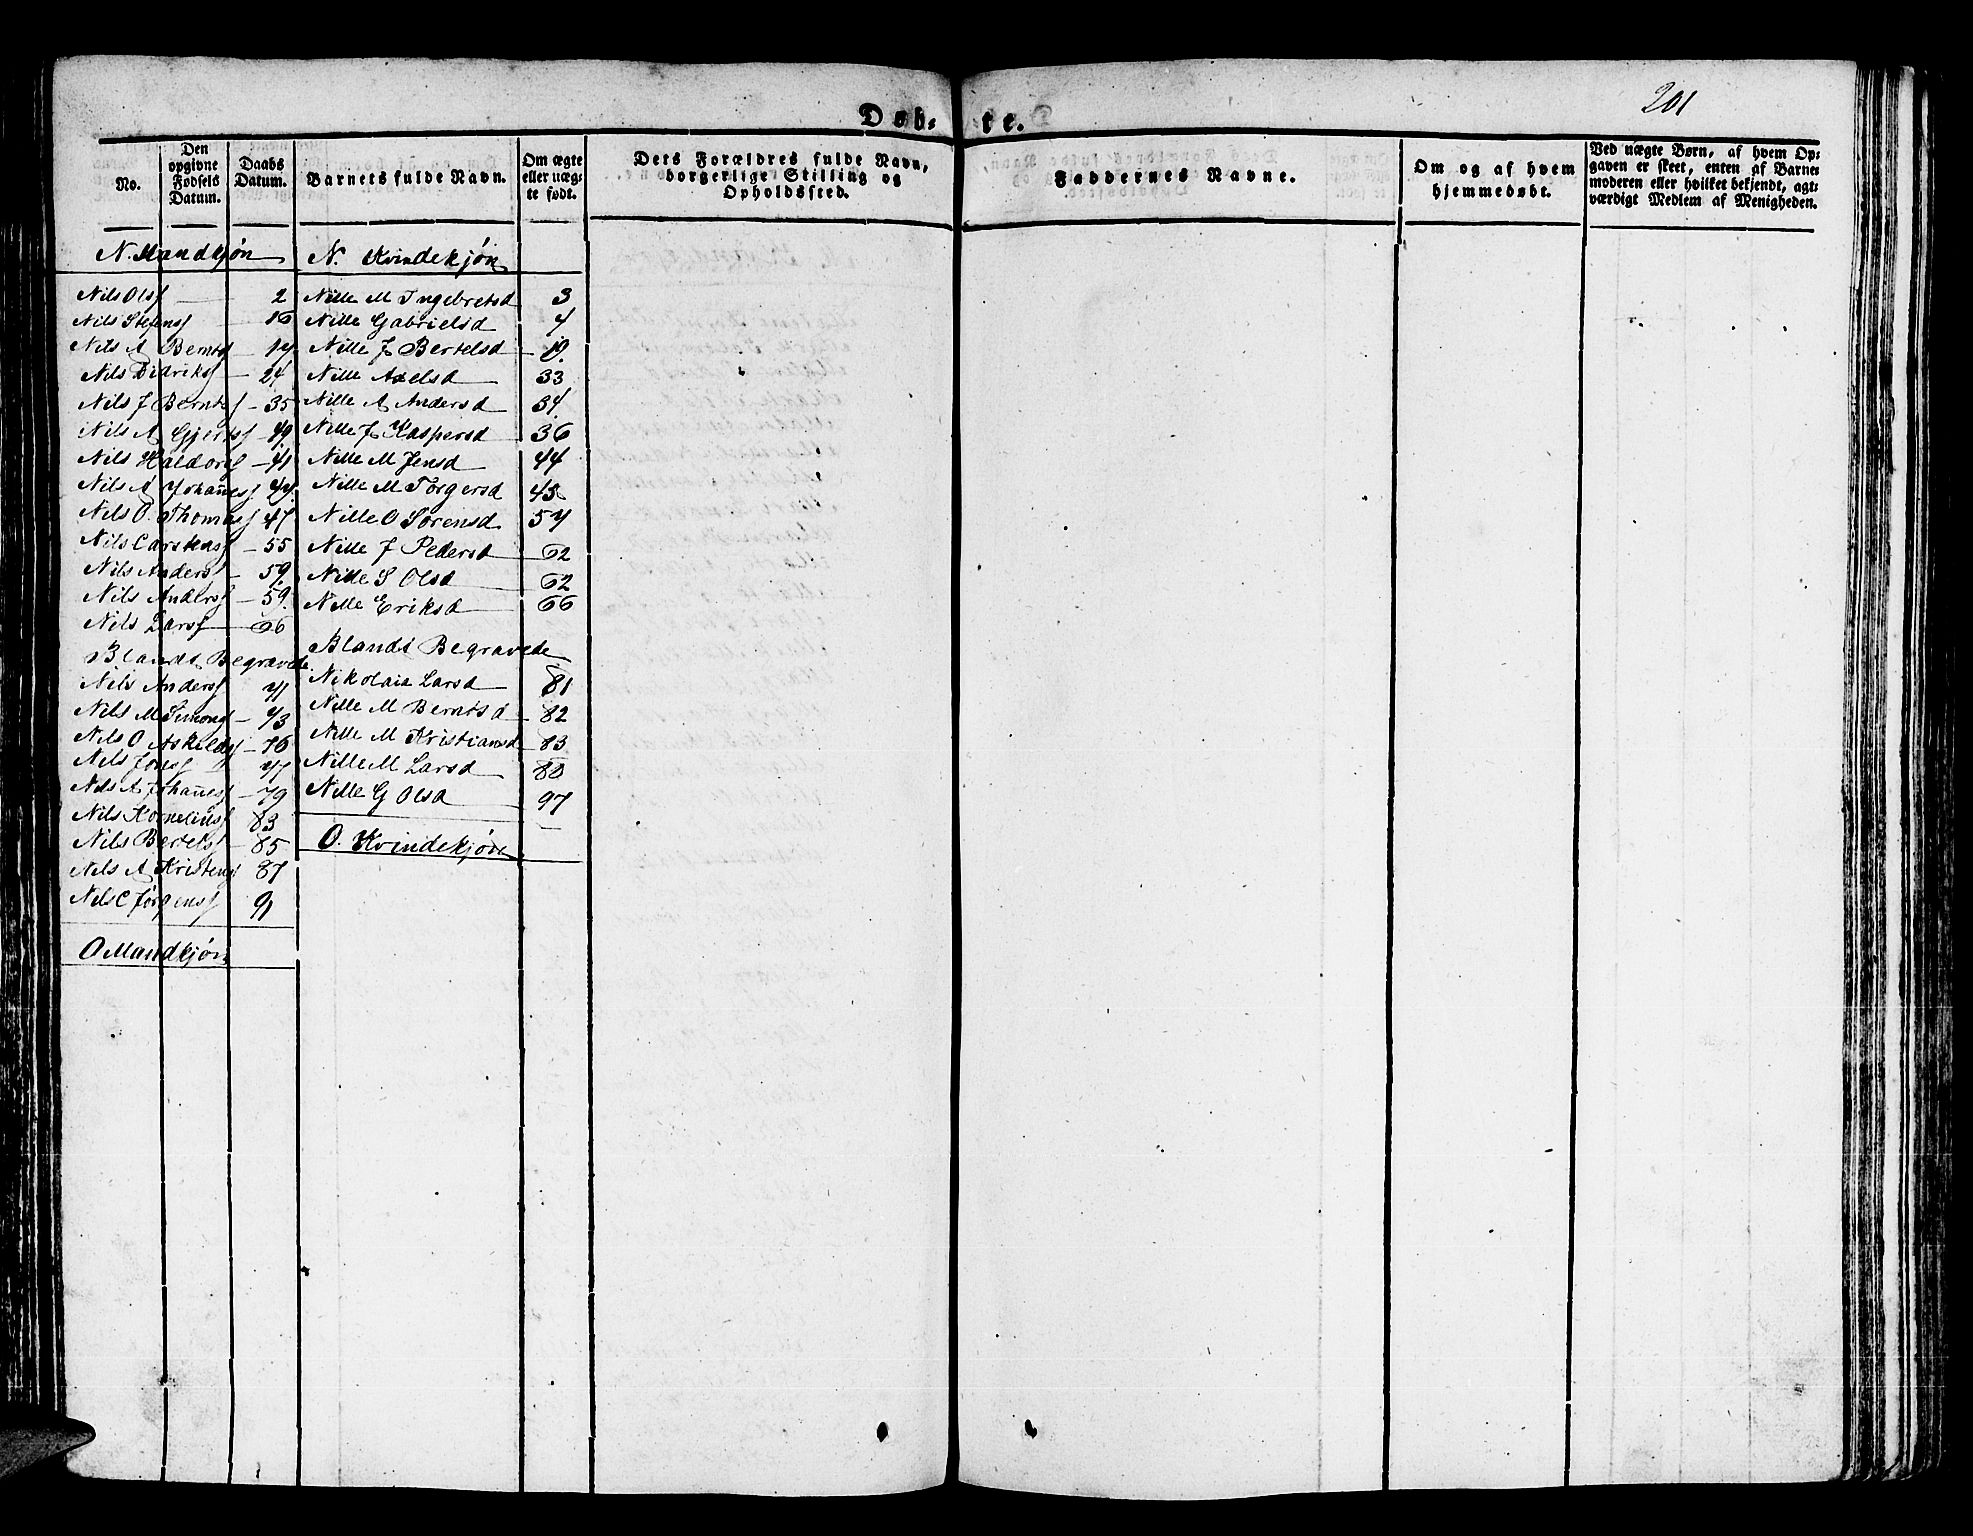 201
Døb- te.
No.
Den opgivne Fødsels Datum.
Daabs Datum.
Barnets fulde Navn.
Om ægte eller uægte født.
Dets Forældres fulde Navn, borgerlige Stilling og Opholdssted.
Faddernes Navne.
Om og af hvem hjemmedøbt.
Ved uægte Børn, af hvem Opgaven er skeet, enten af Barnemoderen eller hvilket bekjendt, agtværdigt Medlem af Menigheden.
N. Mandkjøn
Nils Olsf 2
Nils Stefensf 16
Nils A Berntsf 17
Nils Didriksf 24
Nils J Berntsf 35
Nils A Gjertsf
Nils Haldorsf 41
Nils A Johañesf 44
Nils O. Thomasf 47
Nils Carstensf 55
Nils Andersf 59.
Nils Andersf 59.
Nils Larsf 66
Blandt Begravede
Nils Andersf 71
Nils M Simonsf 73
Nils O Askeldsf 76
Nils Jonsf 77
Nils A Johañesf 79
Nils Korneliusf 83
Nils Bertelsf 85
Nils A Kristensf 87
Nils C Jørgensf 91
O Mandkjøn
N. Kvindekjøn
Nille M Ingebretsd 3
Nille Gabrielsd 4
Nille J Bertelsd 10.
Nille Axelsd 33
Nille A Andersd 34.
Nille J Kaspersd 36
Nille M Jensd 44
Nille M Torgersd 45
Nille O Sørensd 57
Nille J Pedersd 62
Nille S Olsd 62
Nille Eriksd 66
Blandt Begravede
Nikolaia Larsd 81
Nille M Berntsd 82
Nille M Kristiansd 83
Nille M Larsd 80
Nille G Olsd 97
O. Kvindekjøn